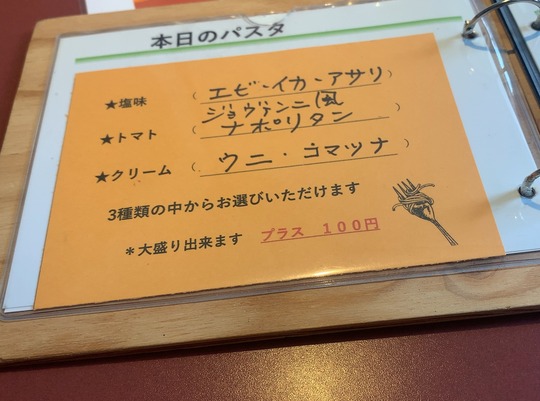 本日のパスタ
★塩味 (エビ・イカ・アサリ)
ジョヴァンニ風
★トマト (ナポリタン)
★クリーム (ウニ・コマツナ)
3種類の中からお選びいただけます
＊大盛り出来ます プラス 100円